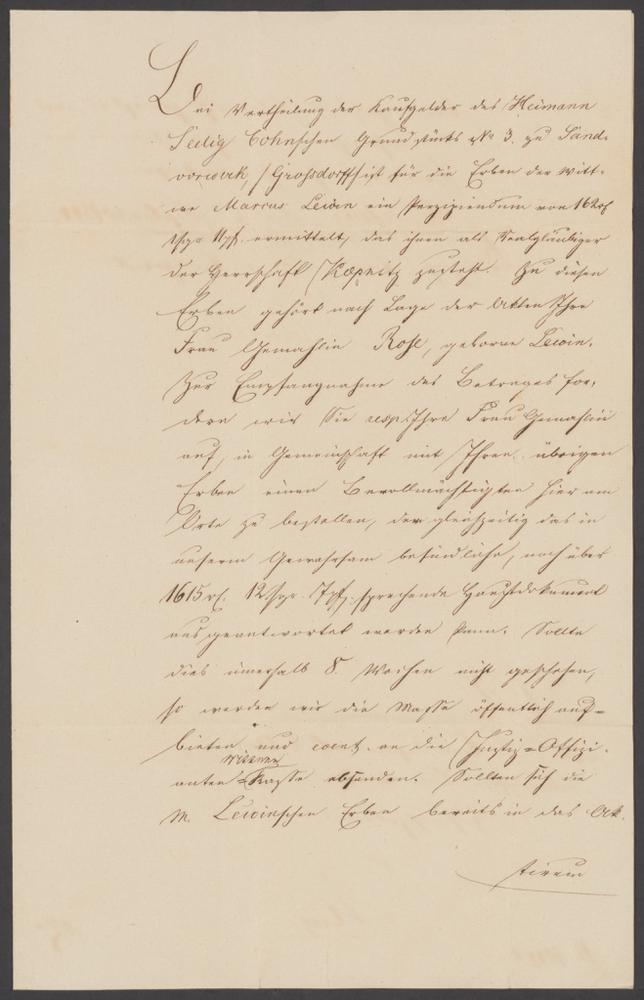 Bei Vertheilung der Kaufgelder des Heimann
Selig Cohnschen Grundstücks No 3. zu Land-
vorwerk, /Grossdorff/ ist für die Erben der Witt-
we Marcus Lewin ein Perzipiendum von
11 pf. ermittelt, das ihnen als Realgläubiger
der Herrschaft Köpnitz zusteht. Zu diesen
Erben gehört nach Lage der Akten Ihre
Frau Gemahlin Rose, geborne Lewin.
Zur Empfangnahme des Betrages for-
dern wir Sie resp. Ihre Frau Gemahlin
auf, in Gemeinschaft mit Ihren übrigen
Erben einen Bevollmächtigten hier am
Orte zu bestellen, dem gleichzeitig das in
unserm Gewahrsam befindliche, noch über
1615 rt. 12 sgr. 7 pf. sprechende Hauptdokument
ausgeantwortet werden kann. Sollte
dies innerhalb 8 Wochen nicht geschehen,
so werden wir die Masse öffentlich auf-
bieten und event. an die Justiz-Offizi-
anten-Wittwen-Kasse absenden. Sollten sich die
M. Lewinschen Erben bereits in das Ak-
tivum